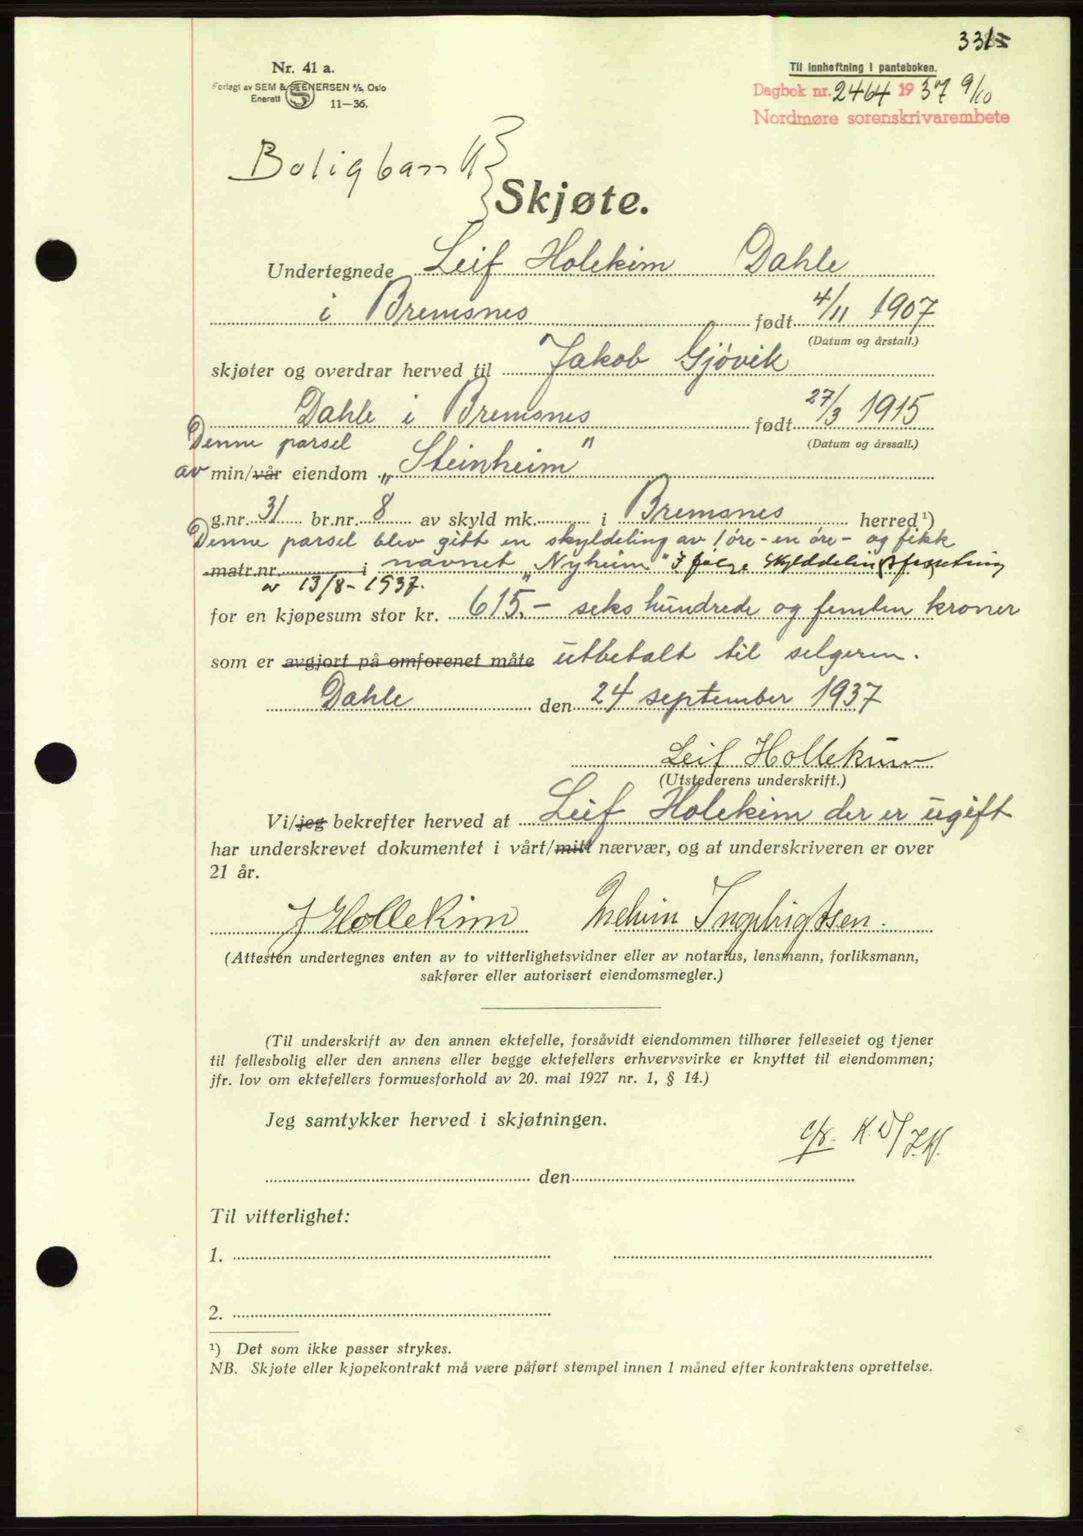 331
Nr. 41 a.
Forlagt av SEM & STENERSEN A/S, Oslo
Enerett
11—36.
Til innheftning i panteboken.
Dagbok nr. 2464 1937 9/10
Nordmøre sorenskrivarembete
Boligbank
Skjøte.
Undertegnede Leif Holekim Dahle
i Bremsnes født 4/11 1907
(Datum og årstall.)
skjøter og overdrar herved til Jakob Gjøvik
Dahle i Bremsnes født 27/3 1915
(Datum og årssall.)
Denne parsel
av min/vår eiendom „Steinheim"
g.nr. 31 br.nr. 8 av skyld mk. i Bremsnes herred ¹)
Denne parsel blev gitt en skyldeling av 1 øre - en øre - og fikk
matr.nr. i navnet „Nyheim" I følge skylddelingsforretning
av 13/8-1937.
for en kjøpesum stor kr. 615.- seks hundrede og femten kroner
som er avgjort på omforenet måte utbetalt til selgeren.
Dahle den 24 september 1937
Leif Hollekim
(Utstederens underskrift.)
Vi/jeg bekrefter herved at Leif Holekim der er ugift
har underskrevet dokumentet i vårt/mitt nærvær, og at underskriveren er over
21 år.
J Hollekim Melvin Ingebrigtsen.
(Attesten undertegnes enten av to vitterlighetsvidner eller av notarius, lensmann, forliksmann,
sakfører eller autorisert eiendomsmegler.)
(Til underskrift av den annen ektefelle, forsåvidt eiendommen tilhører felleseiet og tjener
til fellesbolig eller den annens eller begge ektefellers erhvervsvirke er knyttet til eiendommen;
jfr. lov om ektefellers formuesforhold av 20. mai 1927 nr. 1, § 14.)
Jeg samtykker herved i skjøtningen.
den
Til vitterlighet:
1.
2.
¹) Det som ikke passer strykes.
NB. Skjøte eller kjøpekontrakt må være påført stempel innen 1 måned efter kontraktens oprettelse.